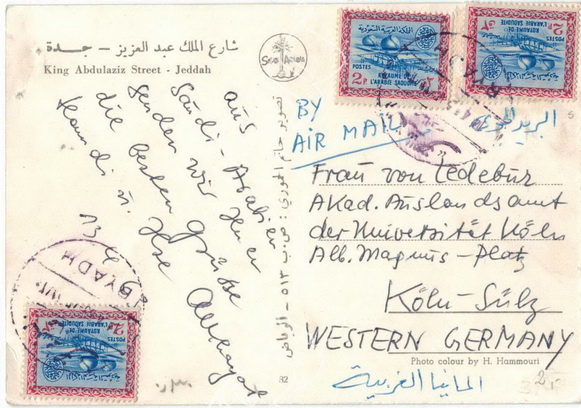 شارع الملك عبد العزيز - جدة
King Abdulaziz Street - Jeddah
aus
Saudi-Arabien
senden wir Ihnen
die besten Grüsse
u. Ilse
BY
AIR MAIL
البريد الجوي
Frau von Ledebur
Akad. Auslandsamt
der Universität Köln
Alb. Magnus-Platz
Köln-Sülz
WESTERN GERMANY
المانيا الغربية
Photo colour by H. Hammouri
82
تصوير حاتم الحموري : ص.ب ٥١٣ - الرياض
المملكة العربية السعودية
2 P.
POSTES
ROYAUME DE
L'ARABIE SAOUDITE
POSTES
ROYAUME DE
L'ARABIE SAOUDITE
ROYAUME DE
L'ARABIE SAOUDITE
RIYADH